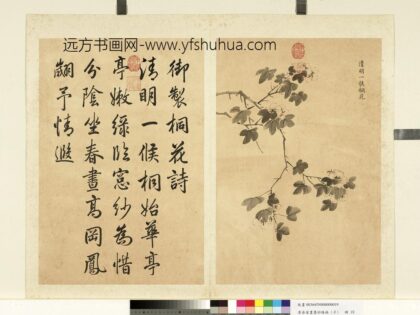 远方书画网-www.yfshuhua.com
清明一候桐花
御製桐花詩
清明一候桐始華亭
亭嫩綠臨窓紗為惜
分陰坐春晝高岡鳳
翽予情遐